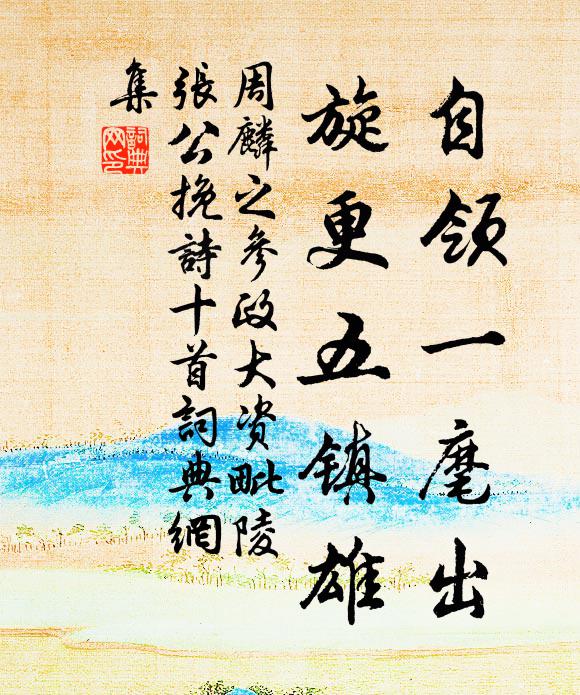 自领一麾出
旋更五镇雄
周麟之参政大资毗陵
张公挽诗十首词典网
集
词典
网印